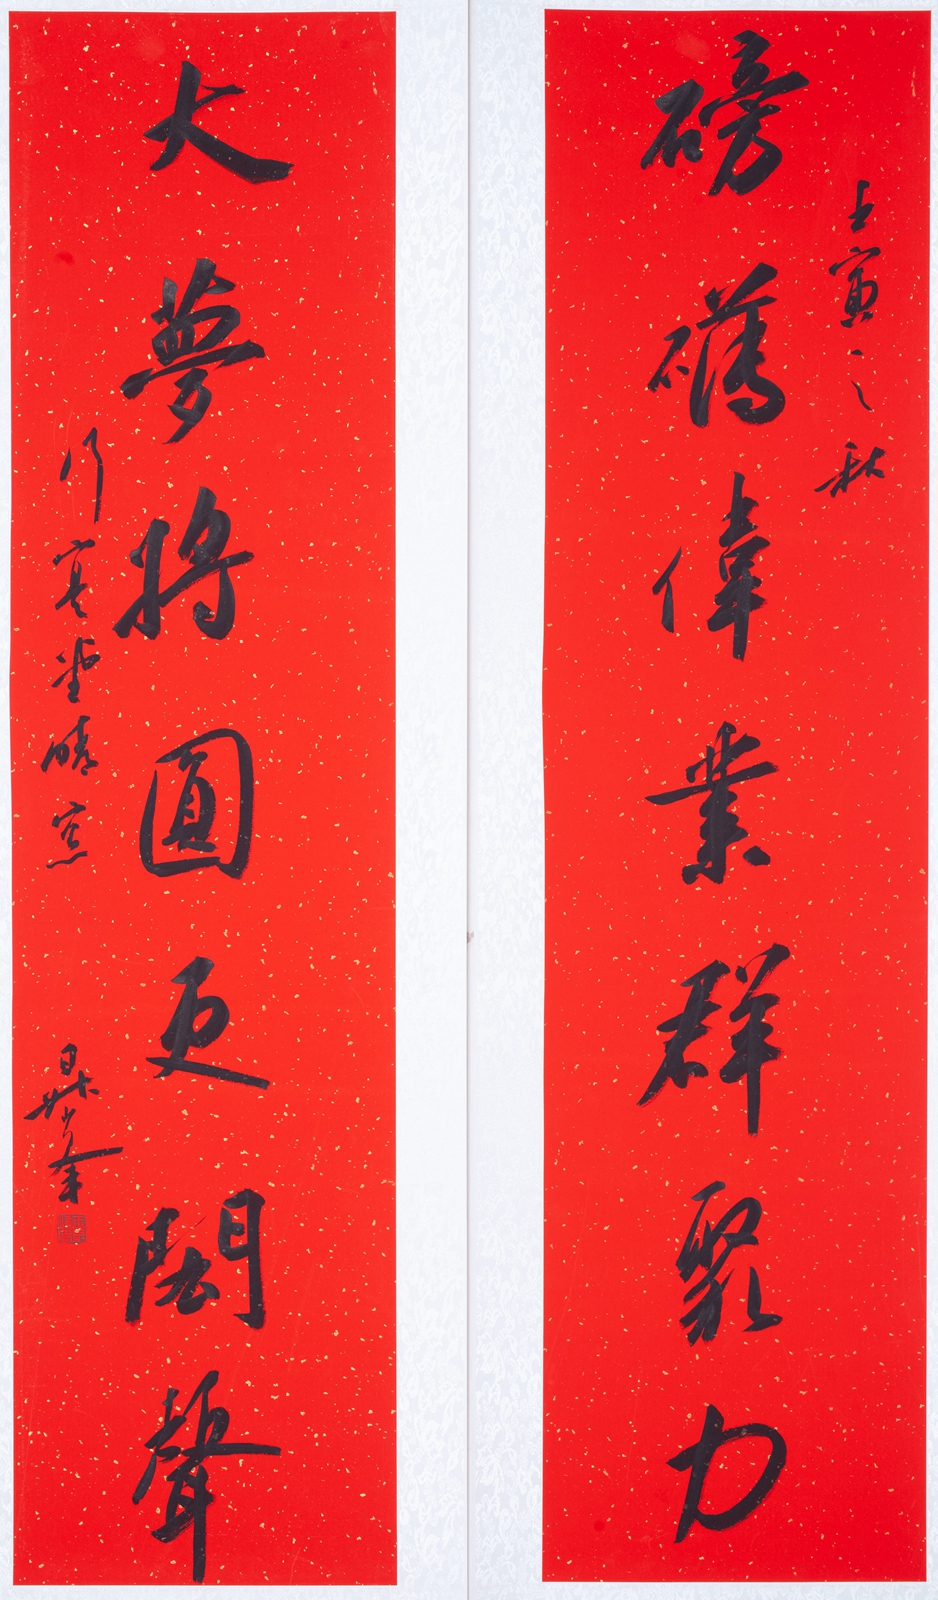 壬寅之秋
磅礴偉業群聚力
大夢將圓更閎聲
堂晴窗